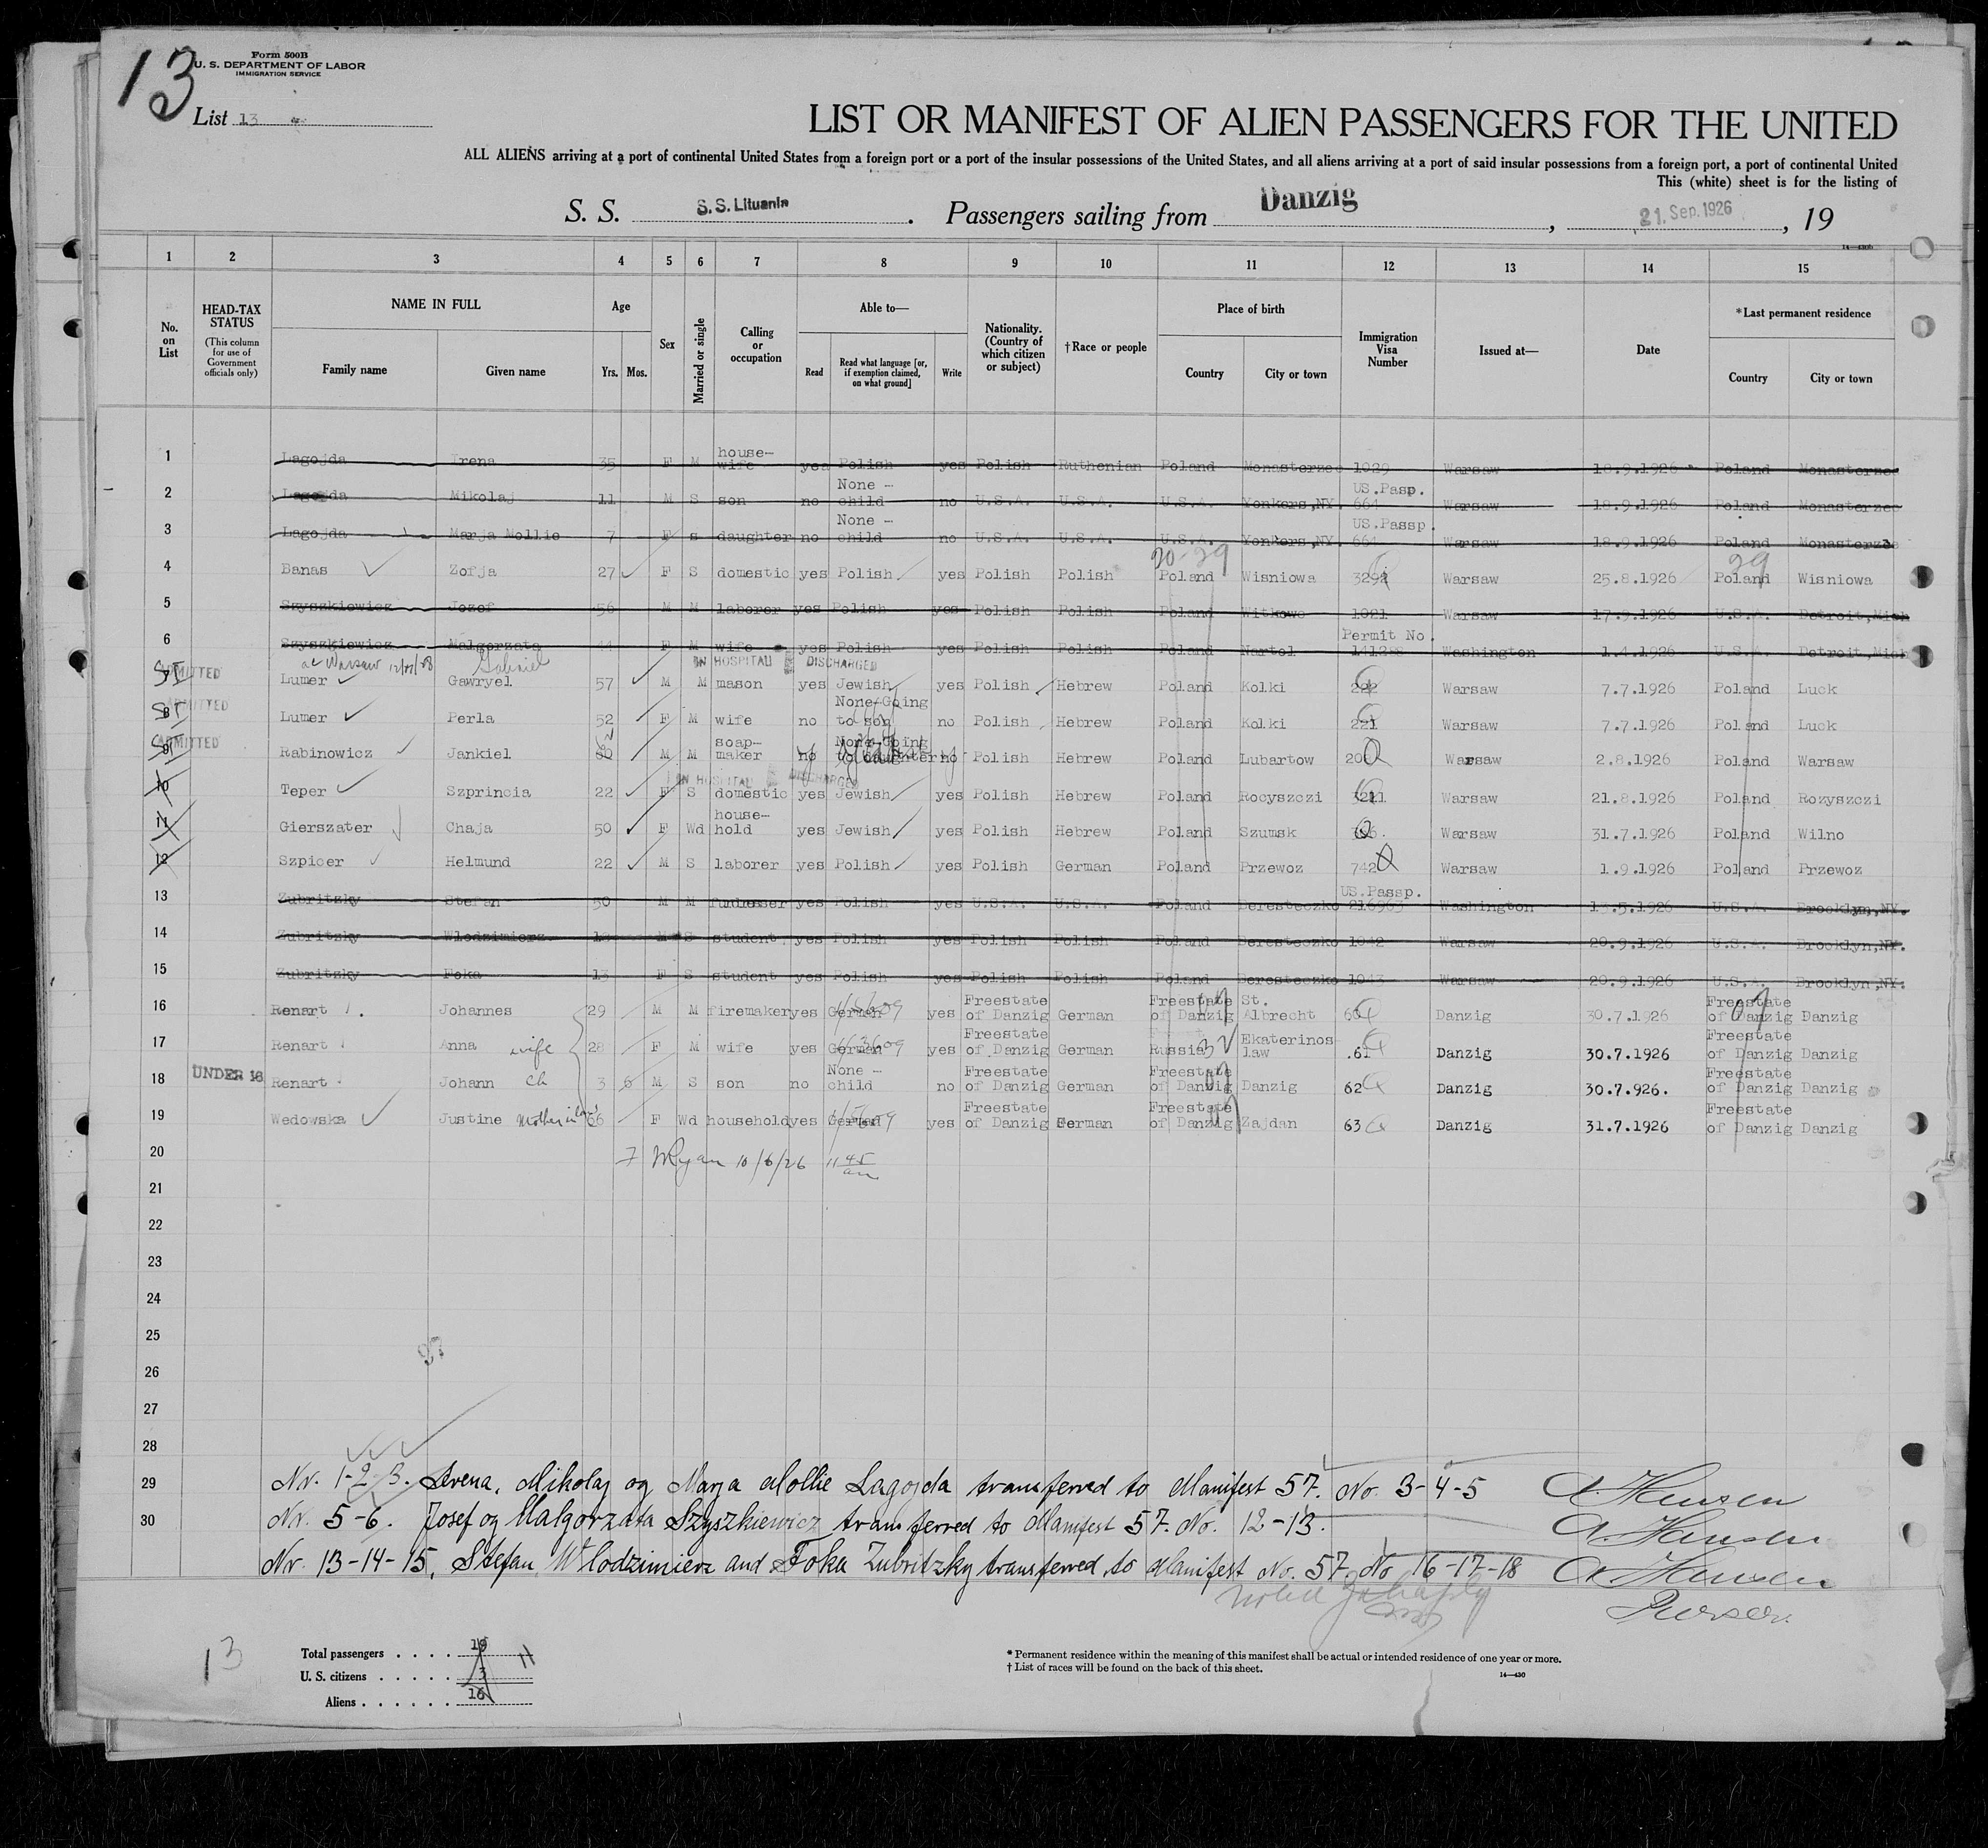 13
Form 500B
U. S. DEPARTMENT OF LABOR
IMMIGRATION SERVICE
List 13
LIST OR MANIFEST OF ALIEN PASSENGERS FOR THE UNITED
ALL ALIENS arriving at a port of continental United States from a foreign port or a port of the insular possessions of the United States, and all aliens arriving at a port of said insular possessions from a foreign port, a port of continental United
This (white) sheet is for the listing of
S. S. S.S. Lituania. Passengers sailing from Danzig, 21. Sep. 1926, 19
14—430b
1 2 3 4 5 6 7 8 9 10 11 12 13 14 15
No. on List
HEAD-TAX STATUS (This column for use of Government officials only)
NAME IN FULL Family name Given name
Age Yrs. Mos.
Sex
Married or single
Calling or occupation
Able to— Read Read what language [or, if exemption claimed, on what ground] Write
Nationality. (Country of which citizen or subject)
†Race or people
Place of birth Country City or town
Immigration Visa Number
Issued at—
Date
*Last permanent residence Country City or town
1 Lagojda Irena 35 F M house-wife yes Polish yes Polish Ruthenian Poland Monasterzec 1029 Warsaw 18.9.1926 Poland Monasterzec
2 Lagojda Mikolaj 11 M S son no None - child no U.S.A. U.S.A. U.S.A. Yonkers,NY. US.Pasp. 664 Warsaw 18.9.1926 Poland Monasterzec
3 Lagojda Marja Mollie 7 F s daughter no None - child no U.S.A. U.S.A. U.S.A. Yonkers,NY. US.Passp. 664 Warsaw 18.9.1926 Poland Monasterzec
20-29 29
4 Banas Zofja 27 F S domestic yes Polish yes Polish Polish Poland Wisniowa Warsaw 25.8.1926 Poland Wisniowa
5 Szyszkiewicz Jozef 56 M M laborer yes Polish yes Polish Polish Poland Witkowo 1021 Warsaw 17.9.1926 U.S.A. Detroit,Mich
6 Szyszkiewicz Malgorzata 44 F M wife yes Polish yes Polish Polish Poland Nartol Permit No. Washington 1.4.1926 U.S.A. Detroit,Mich
Gabriel IN HOSPITAL DISCHARGED
ADMITTED SI 7 Lumer Gawryel 57 M M mason yes Jewish yes Polish Hebrew Poland Kolki 222 Warsaw 7.7.1926 Poland Luck
ADMITTED SI 8 Lumer Perla 52 F M wife no None-Going to son no Polish Hebrew Poland Kolki 221 Warsaw 7.7.1926 Poland Luck
ADMITTED SI 9 Rabinowicz Jankiel 60 M M soap-maker no None-Going to daughter no Polish Hebrew Poland Lubartow 200 Warsaw 2.8.1926 Poland Warsaw
IN HOSPITAL DISCHARGED
10 Teper Szprincia 22 F S domestic yes Jewish yes Polish Hebrew Poland Rocyszczi Warsaw 21.8.1926 Poland Rozyszczi
11 Gierszater Chaja 50 F Wd house-hold yes Jewish yes Polish Hebrew Poland Szumsk Warsaw 31.7.1926 Poland Wilno
12 Szpicer Helmund 22 M S laborer yes Polish yes Polish German Poland Przewoz 742 Warsaw 1.9.1926 Poland Przewoz
13 Zubritzky Stefan 50 M M yes Polish yes U.S.A. U.S.A. Poland Beresteczko US.Passp. 216963 Washington 13.5.1926 U.S.A. Brooklyn,NY.
14 Zubritzky Wlodzimierz M S student yes Polish yes Polish Polish Poland Beresteczko 1042 Warsaw 20.9.1926 U.S.A. Brooklyn,NY.
15 Zubritzky Foka 13 F S student yes Polish yes Polish Polish Poland Beresteczko 1043 Warsaw 20.9.1926 U.S.A. Brooklyn,NY.
16 Renart Johannes 29 M M firemaker yes German yes Freestate of Danzig German Freestate of Danzig St. Albrecht 60 Danzig 30.7.1926 Freestate of Danzig Danzig
17 Renart Anna wife 28 F M wife yes German yes Freestate of Danzig German Russia Ekaterinoslaw .61 Danzig 30.7.1926 Freestate of Danzig Danzig
18 UNDER 16 Renart Johann ch 3 6 M S son no None - child no Freestate of Danzig German Freestate of Danzig Danzig 62 Danzig 30.7.926. Freestate of Danzig Danzig
19 Wedowska Justine mother in law 66 F Wd household yes German yes Freestate of Danzig German Freestate of Danzig Zajdan 63 Danzig 31.7.1926 Freestate of Danzig Danzig
20 7 WRyan 10/6/26 11 45 am
21
22
23
24
25
97
26
27
28
29 Nr. 1-2-3. Irena, Mikolaj og Marja Mollie Lagojda transferred to Manifest 57. No. 3-4-5 A. Hansen
30 Nr. 5-6. Josef og Malgorzata Szyszkiewicz transferred to Manifest 57. No. 12-13. A. Hansen
Nr. 13-14-15, Stefan, Wlodzimierz and Foka Zubritzky transferred to Manifest No. 57. No 16-17-18 A. Hansen
Purser.
13
Total passengers . . . . 19 11
U. S. citizens . . . . . 3
Aliens . . . . . . 16
* Permanent residence within the meaning of this manifest shall be actual or intended residence of one year or more.
† List of races will be found on the back of this sheet.
14—430